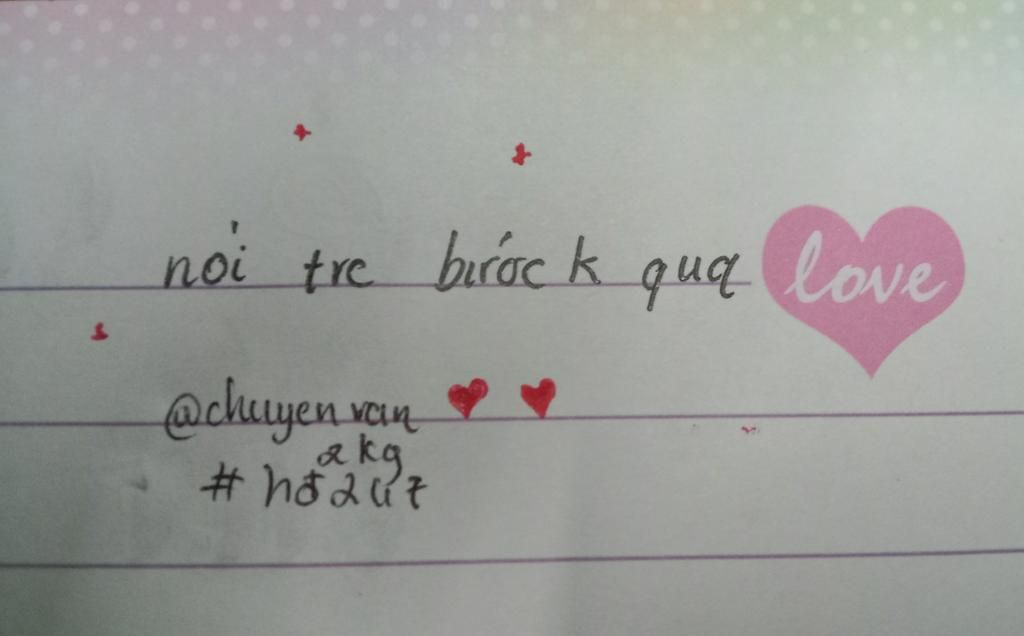 nơi tre bước k qua love
@chuyenvan
2kg
#hđ247